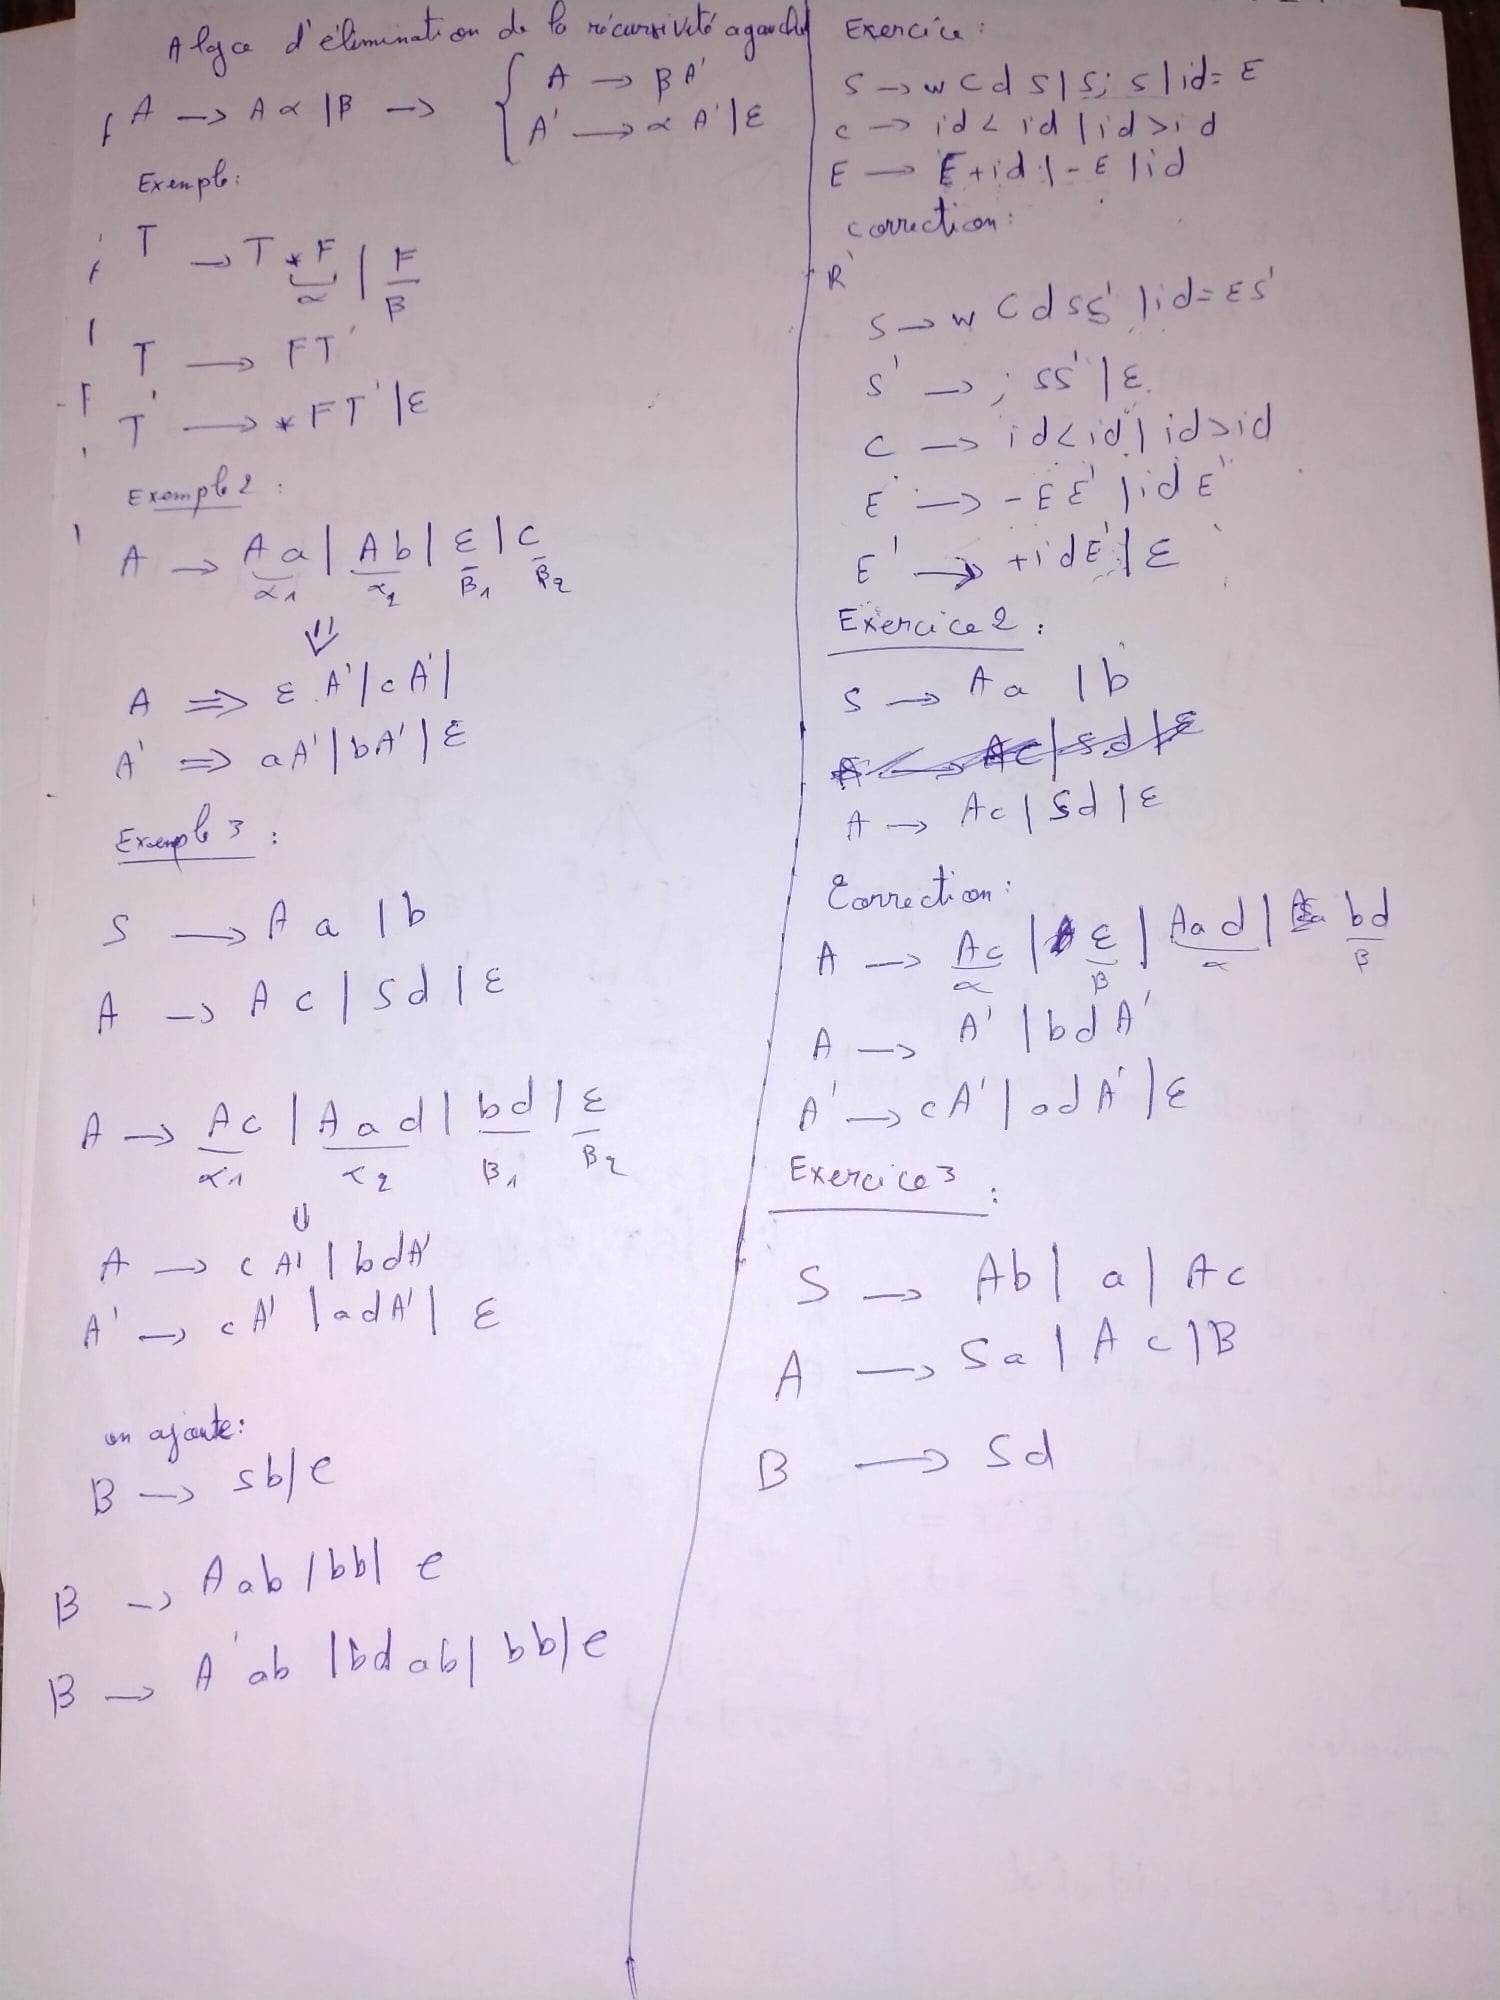 Algo d'élimination de la récursivité agauche
A → Aα | β → { A → βA'
A' → αA' | ε
Exemple:
T → T *F | F
α β
T → FT'
T' → *FT' | ε
Exemple 2 :
A → Aa | Ab | ε | c
α1 α2 β1 β2
⇓
A ⇒ ε A' | cA' |
A' ⇒ aA' | bA' | ε
Exemple 3 :
S → A a | b
A → A c | Sd | ε
A → Ac | Aad | bd | ε
α1 α2 β1 β2
⇓
A → cA' | bdA'
A' → cA' | adA' | ε
on ajoute:
B → Sb | e
B → Aab | bb | e
B → A'ab | bdab | bb | e
Exercice :
S → w C d S | S; S | id = E
C → id < id | id > id
E → E + id | - E | id
correction :
R'
S → w C d SS' | id = ES'
S' → ; SS' | ε
C → id < id | id > id
E → - E E' | id E'
E' → + id E' | ε
Exercice 2 :
S → Aa | b
A → Ac | Sd | ε
A → Ac | Sd | ε
Correction :
A → Ac | ε | Aad | bd
α β α β
A → A' | bdA'
A' → cA' | adA' | ε
Exercice 3 :
S → Ab | a | Ac
A → Sa | Ac | B
B → Sd